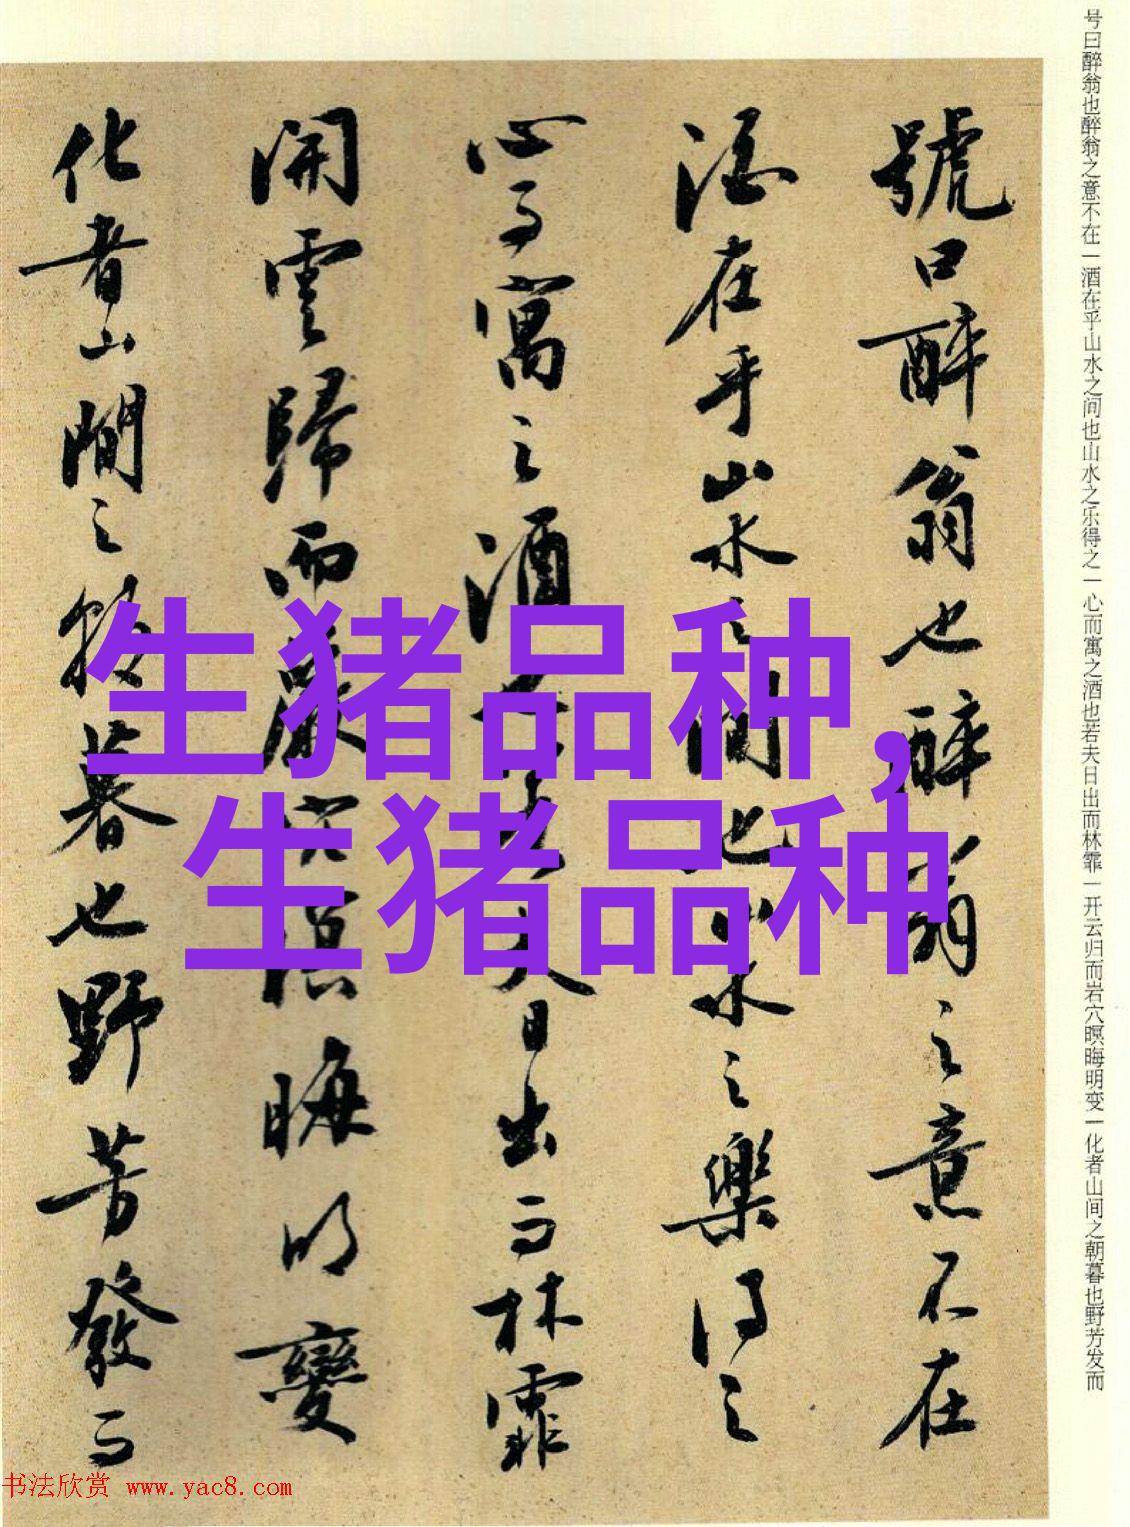 号曰醉翁也醉翁之意不在一酒在乎山水之间也山水之乐得之一心而寓之酒也若夫日出而林霏一开云归而岩穴暝晦明变一化者山间之朝暮也野芳发而
號曰醉翁也醉翁之意不在
酒在乎山水之間也山水之樂得之
心而寓之酒也若夫日出而林霏
開雲歸而巖穴暝晦明變
化者山間之朝暮也野芳發而
生猪品种，
生猪品种
书法欣赏 www.yac8.com